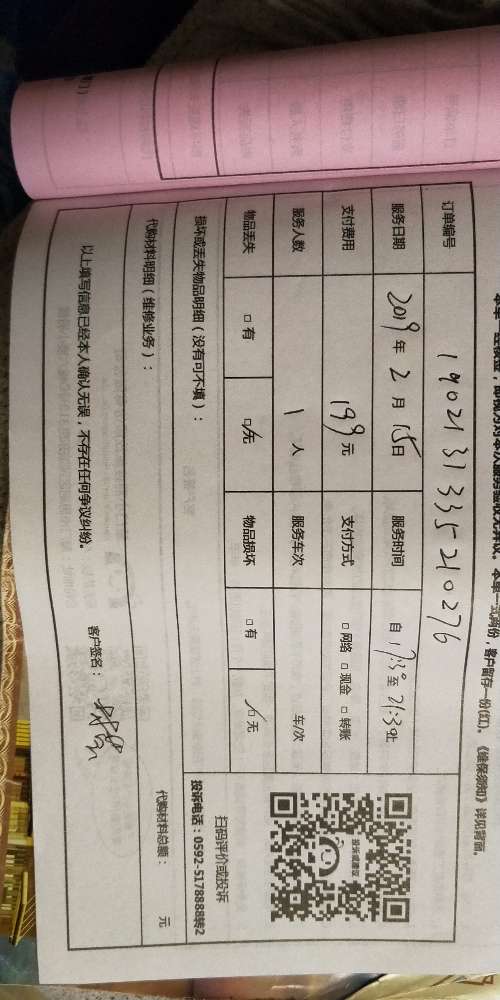 本单一经核验，即视为对本次服务验收无异议。本单一式两份，客户留存一份(红)。《维保须知》详见背面。
订单编号 1902131335210276
服务日期 2019年2月15日 服务时间 自17:30至21:30止
支付费用 199元 支付方式 □网络 □现金 □转账
服务人数 1人 服务车次 车/次
物品丢失 □有 □无 物品损坏 □有 □无
损坏或丢失物品明细（没有可不填）：
代购材料明细（维修业务）： 代购材料总额： 元
以上填写信息已经本人确认无误，不存在任何争议纠纷。
客户签名：
投诉或建议
扫码评价或投诉
投诉电话：0592-5178888转2